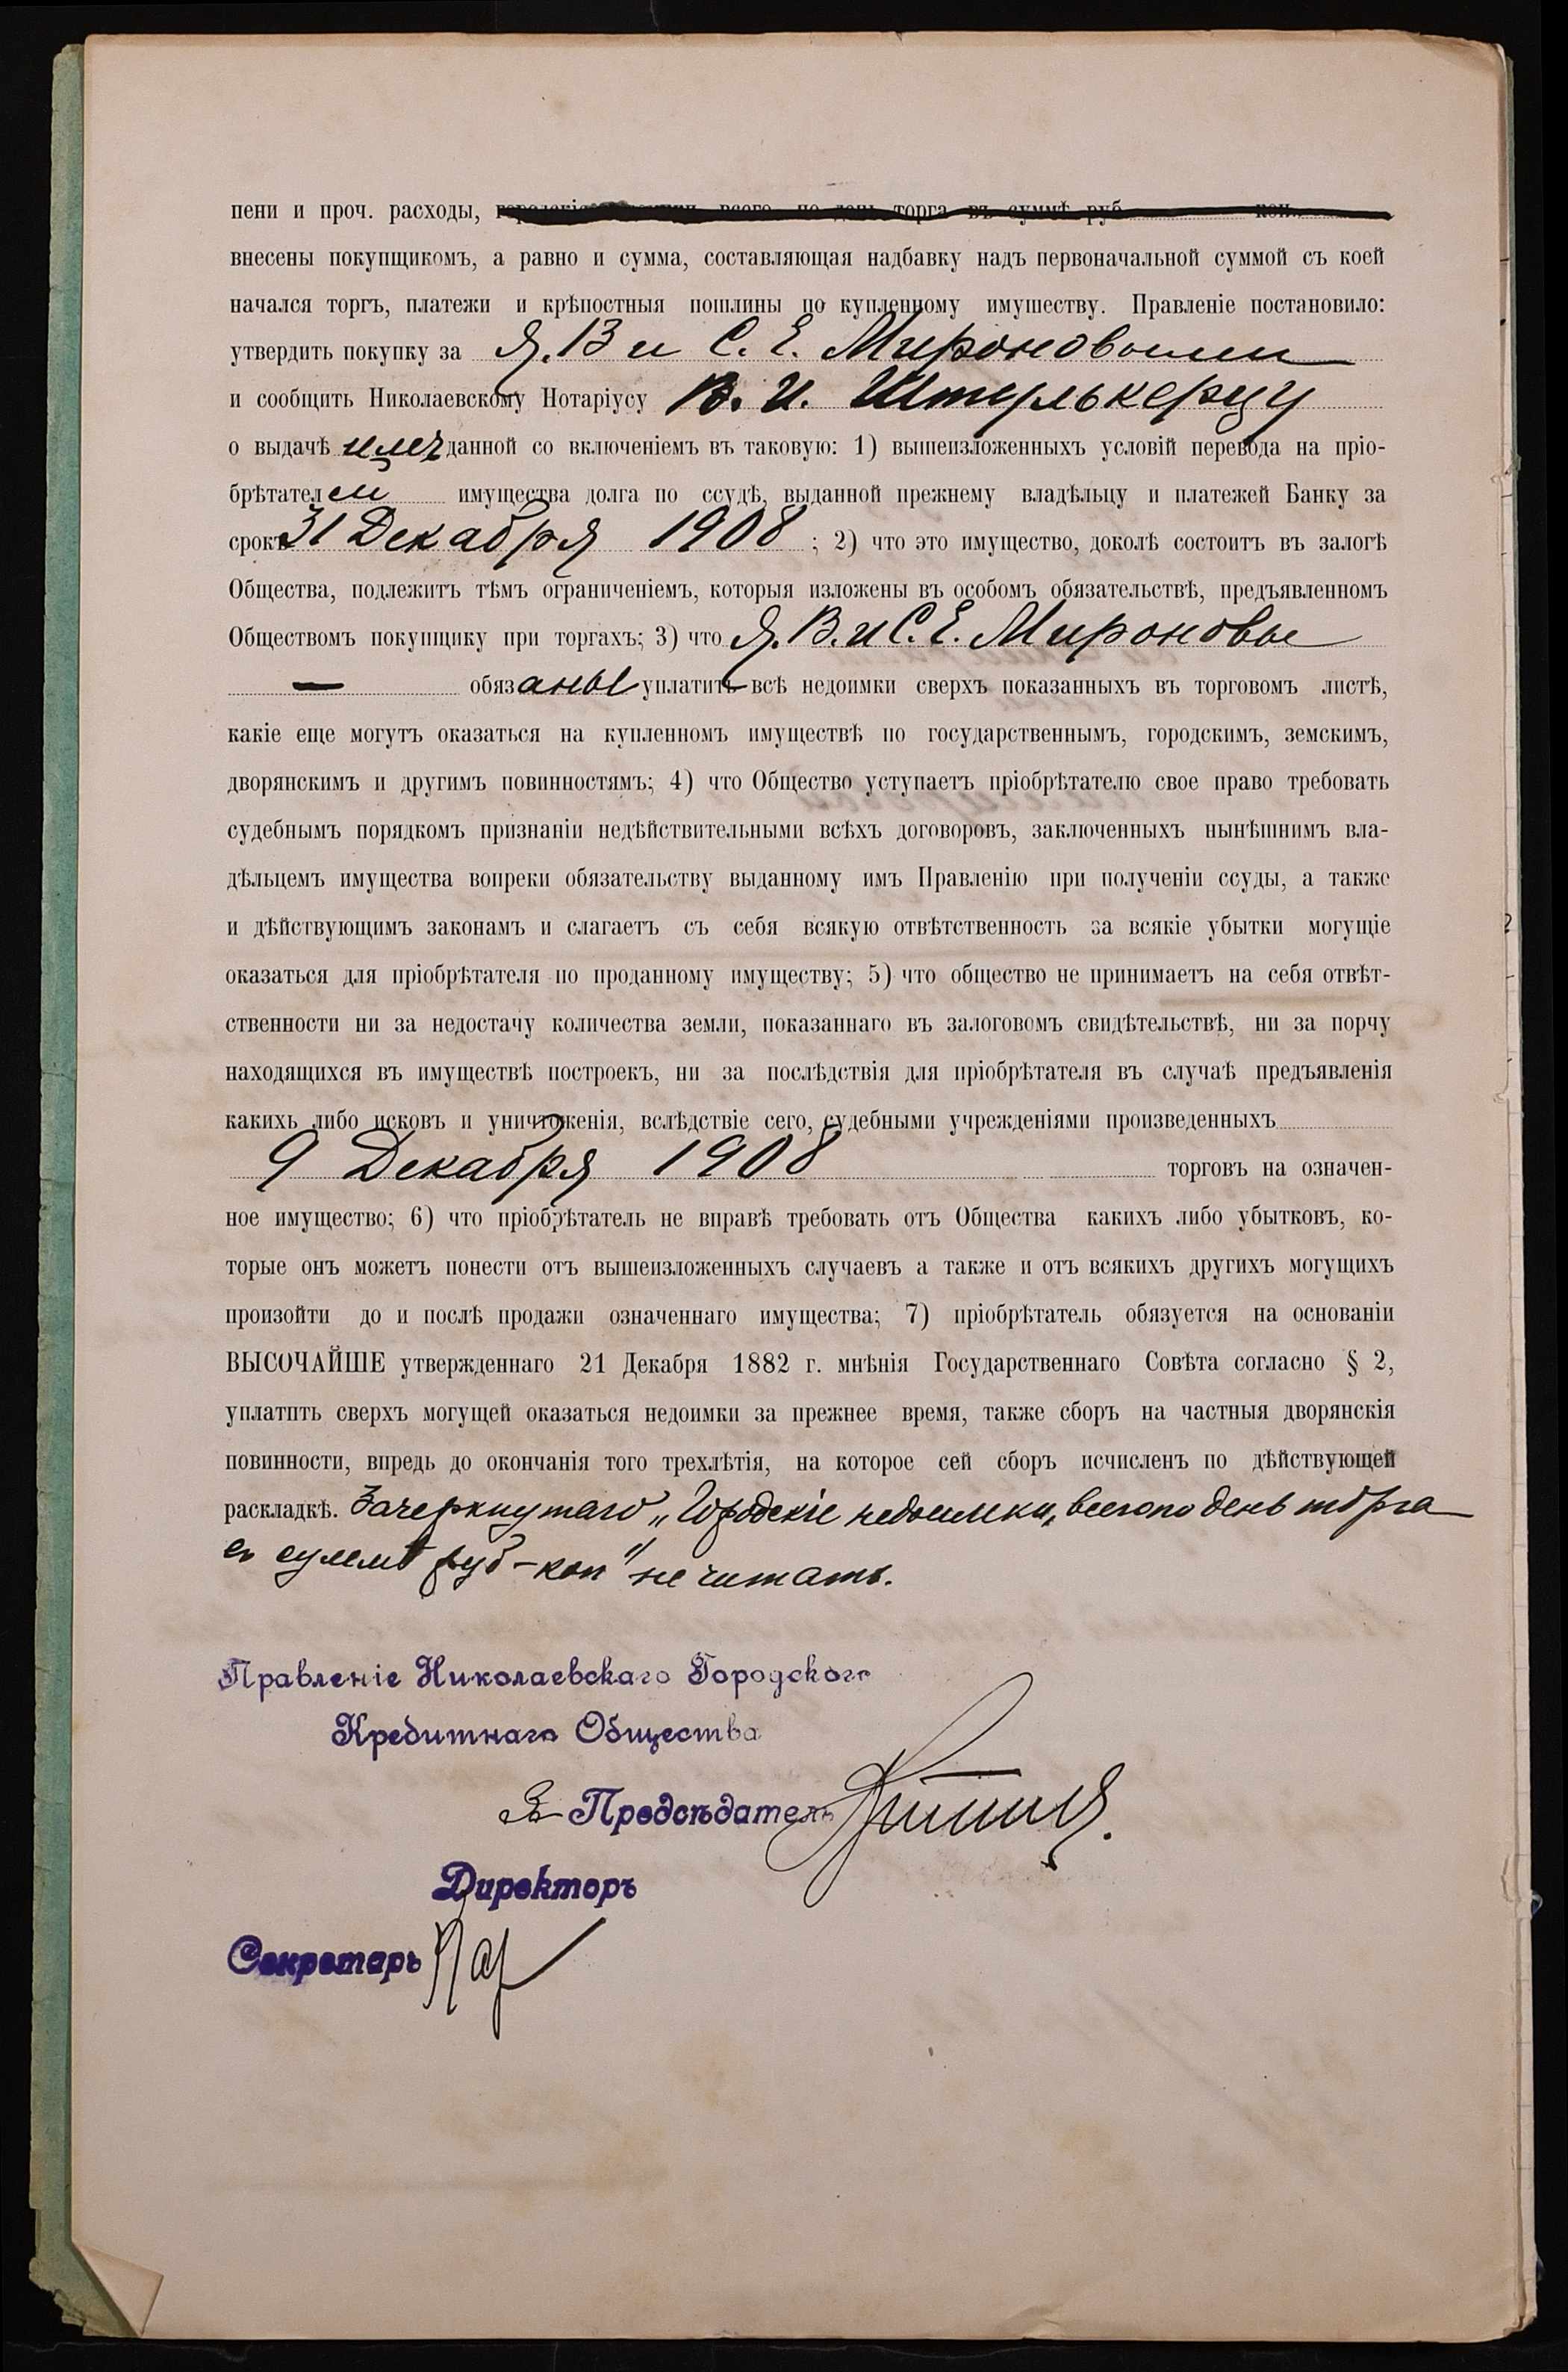 пени и проч. расходы, городскія недоимки всего по день торга въ суммѣ руб коп.
внесены покупщикомъ, а равно и сумма, составляющая надбавку надъ первоначальной суммой съ коей
начался торгъ, платежи и крѣпостныя пошлины по купленному имуществу. Правленіе постановило:
утвердить покупку за Я. В и С. Е. Мироновыми
и сообщить Николаевскому Нотаріусу В. И. Штурлькерцу
о выдачѣ имъ данной со включеніемъ въ таковую: 1) вышеизложенныхъ условій перевода на прі­о-
брѣтателей имущества долга по ссудѣ, выданной прежнему владѣльцу и платежей Банку за
срокъ 31 Декабря 1908 ; 2) что это имущество, доколѣ состоитъ въ залогѣ
Общества, подлежитъ тѣмъ ограниченіемъ, которыя изложены въ особомъ обязательствѣ, предъявленномъ
Обществомъ покупщику при торгахъ; 3) что Я. В. и С. Е. Мироновы
— обязаны уплатить всѣ недоимки сверхъ показанныхъ въ торговомъ листѣ,
какіе еще могутъ оказаться на купленномъ имуществѣ по государственнымъ, городскимъ, земскимъ,
дворянскимъ и другимъ повинностямъ; 4) что Общество уступаетъ пріобрѣтателю свое право требовать
судебнымъ порядкомъ признаніи недѣйствительными всѣхъ договоровъ, заключенныхъ нынѣшнимъ вла-
дѣльцемъ имущества вопреки обязательству выданному имъ Правленію при полученіи ссуды, а также
и дѣйствующимъ законамъ и слагаетъ съ себя всякую отвѣтственность за всякіе убытки могущіе
оказаться для пріобрѣтателя по проданному имуществу; 5) что общество не принимаетъ на себя отвѣт-
ственности ни за недостачу количества земли, показаннаго въ залоговомъ свидѣтельствѣ, ни за порчу
находящихся въ имуществѣ построекъ, ни за послѣдствія для пріобрѣтателя въ случаѣ предъявленія
какихъ либо исковъ и уничтоженія, вслѣдствіе сего, судебными учрежденіями произведенныхъ
9 Декабря 1908 торговъ на означен-
ное имущество; 6) что пріобрѣтатель не вправѣ требовать отъ Общества какихъ либо убытковъ, ко-
торые онъ можетъ понести отъ вышеизложенныхъ случаевъ а также и отъ всякихъ другихъ могущихъ
произойти до и послѣ продажи означеннаго имущества; 7) пріобрѣтатель обязуется на основаніи
ВЫСОЧАЙШЕ утвержденнаго 21 Декабря 1882 г. мнѣнія Государственнаго Совѣта согласно § 2,
уплатить сверхъ могущей оказаться недоимки за прежнее время, также сборъ на частныя дворянскія
повинности, впредь до окончанія того трехлѣтія, на которое сей сборъ исчисленъ по дѣйствующей
раскладкѣ. Зачеркнутаго „Городскіе недоимки, всего по день торга
въ суммѣ руб – коп" не читать.
Правленіе Николаевскаго Городского
Кредитнаго Общества
За Предсѣдатель
Директоръ
Секретарь